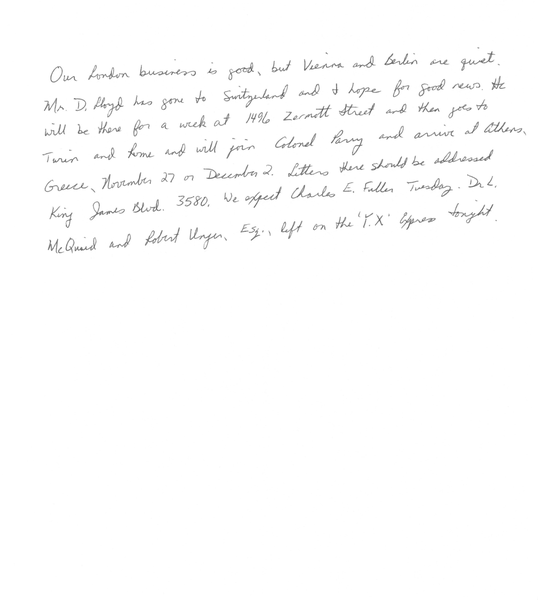 Our London business is good, but Vienna and Berlin are quiet.
Mr. D. Lloyd has gone to Switzerland and I hope for good news. He
will be there for a week at 1496 Zermott Street and then goes to
Turin and Rome and will join Colonel Parry and arrive at Athens,
Greece, November 27 or December 2. Letters there should be addressed
King James Blvd. 3580. We expect Charles E. Fuller Tuesday. Dr. L.
McQuaid and Robert Unger, Esq., left on the 'Y.X' Express tonight.